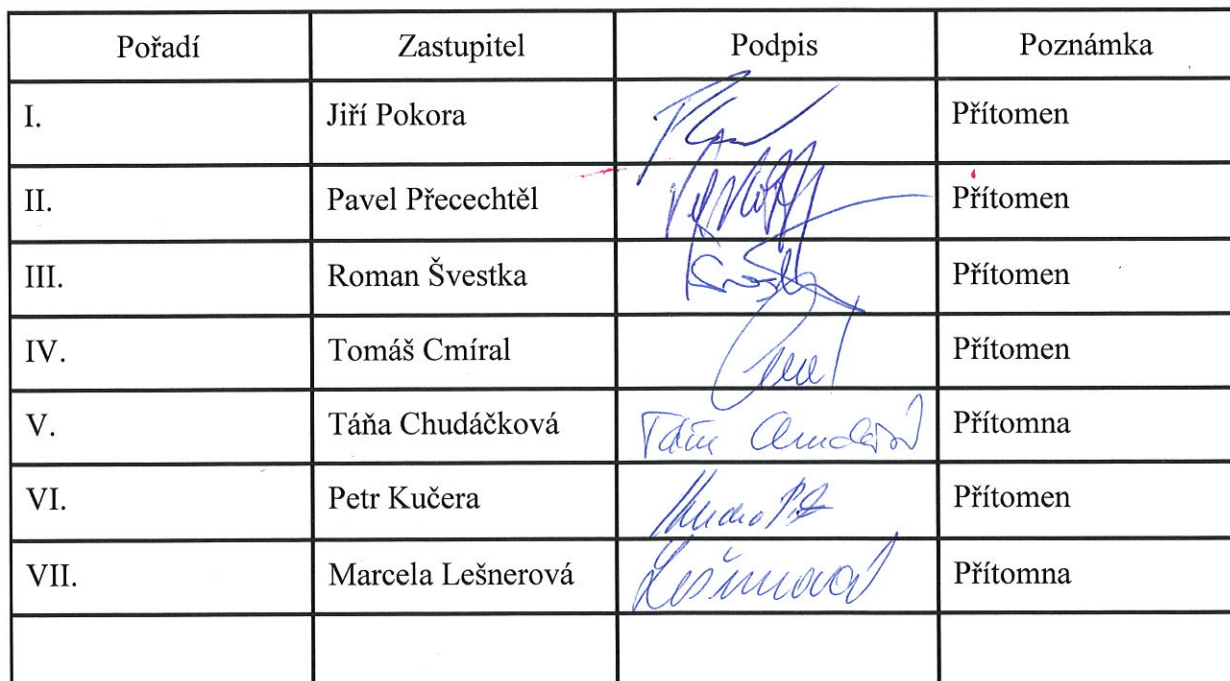 Pořadí Zastupitel Podpis Poznámka
I. Jiří Pokora Přítomen
II. Pavel Přecechtěl Přítomen
III. Roman Švestka Přítomen
IV. Tomáš Cmíral Přítomen
V. Táňa Chudáčková Přítomna
VI. Petr Kučera Přítomen
VII. Marcela Lešnerová Přítomna